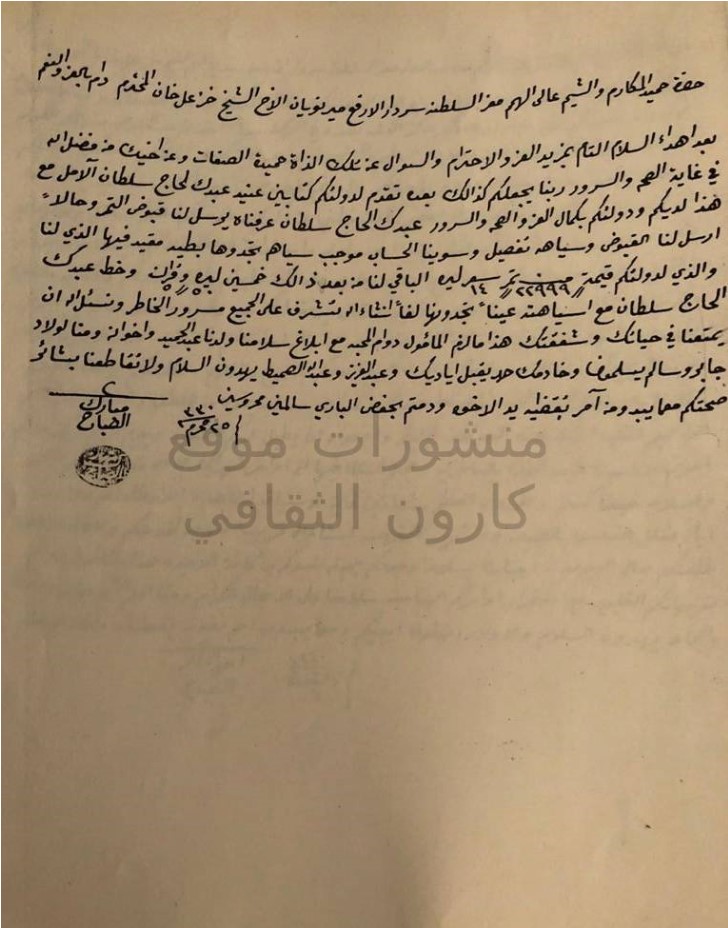 حضرة حميد المكارم والشيم عالى الهمم معز السلطنه سردار الارفع ميرنويان الاخ الشيخ خزعل خان المحترم دام بالعز والنعم
بعد اهداء السلام التام بمزيد العز والاحترام والسوال عن تلك الذاة حميدة الصفات وعن اخيك من فضل الله
في غاية الصحه والسرور ربنا يجعلكم كذالك بعده تقدم لدولتكم كتابين عنيد عبدك لحاج سلطان الآمل مع
هذا لديكم ودولتكم بكمال العز والصحه والسرور عبدك الحاج سلطان عرفناه يوسل لنا قبوض التمر وحالاً
ارسل لنا القبوض وسياهه تفصيل وسوينا الحساب موجب سياهه تجدوها بطيه مقيد فيها الذي لنا
والذي لدولتكم قيمة ٢٢٩٩٩ تمر سعر ليره ١٤ الباقي لنا من بعد ذالك خمسين ليره وخط عبدك
الحاج سلطان مع اسياهته عيناً تجدونها لفاً انشاءاله تتشرف على الجميع مسرور الخاطر ونسئل اله ان
يمتعنا في حياتك وشفقتك هذا مالزم المامول دوام المحبه مع ابلاغ سلامنا ولدنا عبدالحميد واخوانه ومنا لولاد
جابر وسالم يسلمون وخادمك حمد يقبل اياديك وعبدالعزيز وعبداله الصميط يهدون السلام ولا تقاطعنا بشائر
صحتكم مع ما يبدو من آمر يقتضيه يد الاخوه ودمتم بحفض الباري سالمين محروسين
٢٥ محرم ٣٣٠
مبارك
الصباح
منشورات موقع
كارون الثقافي